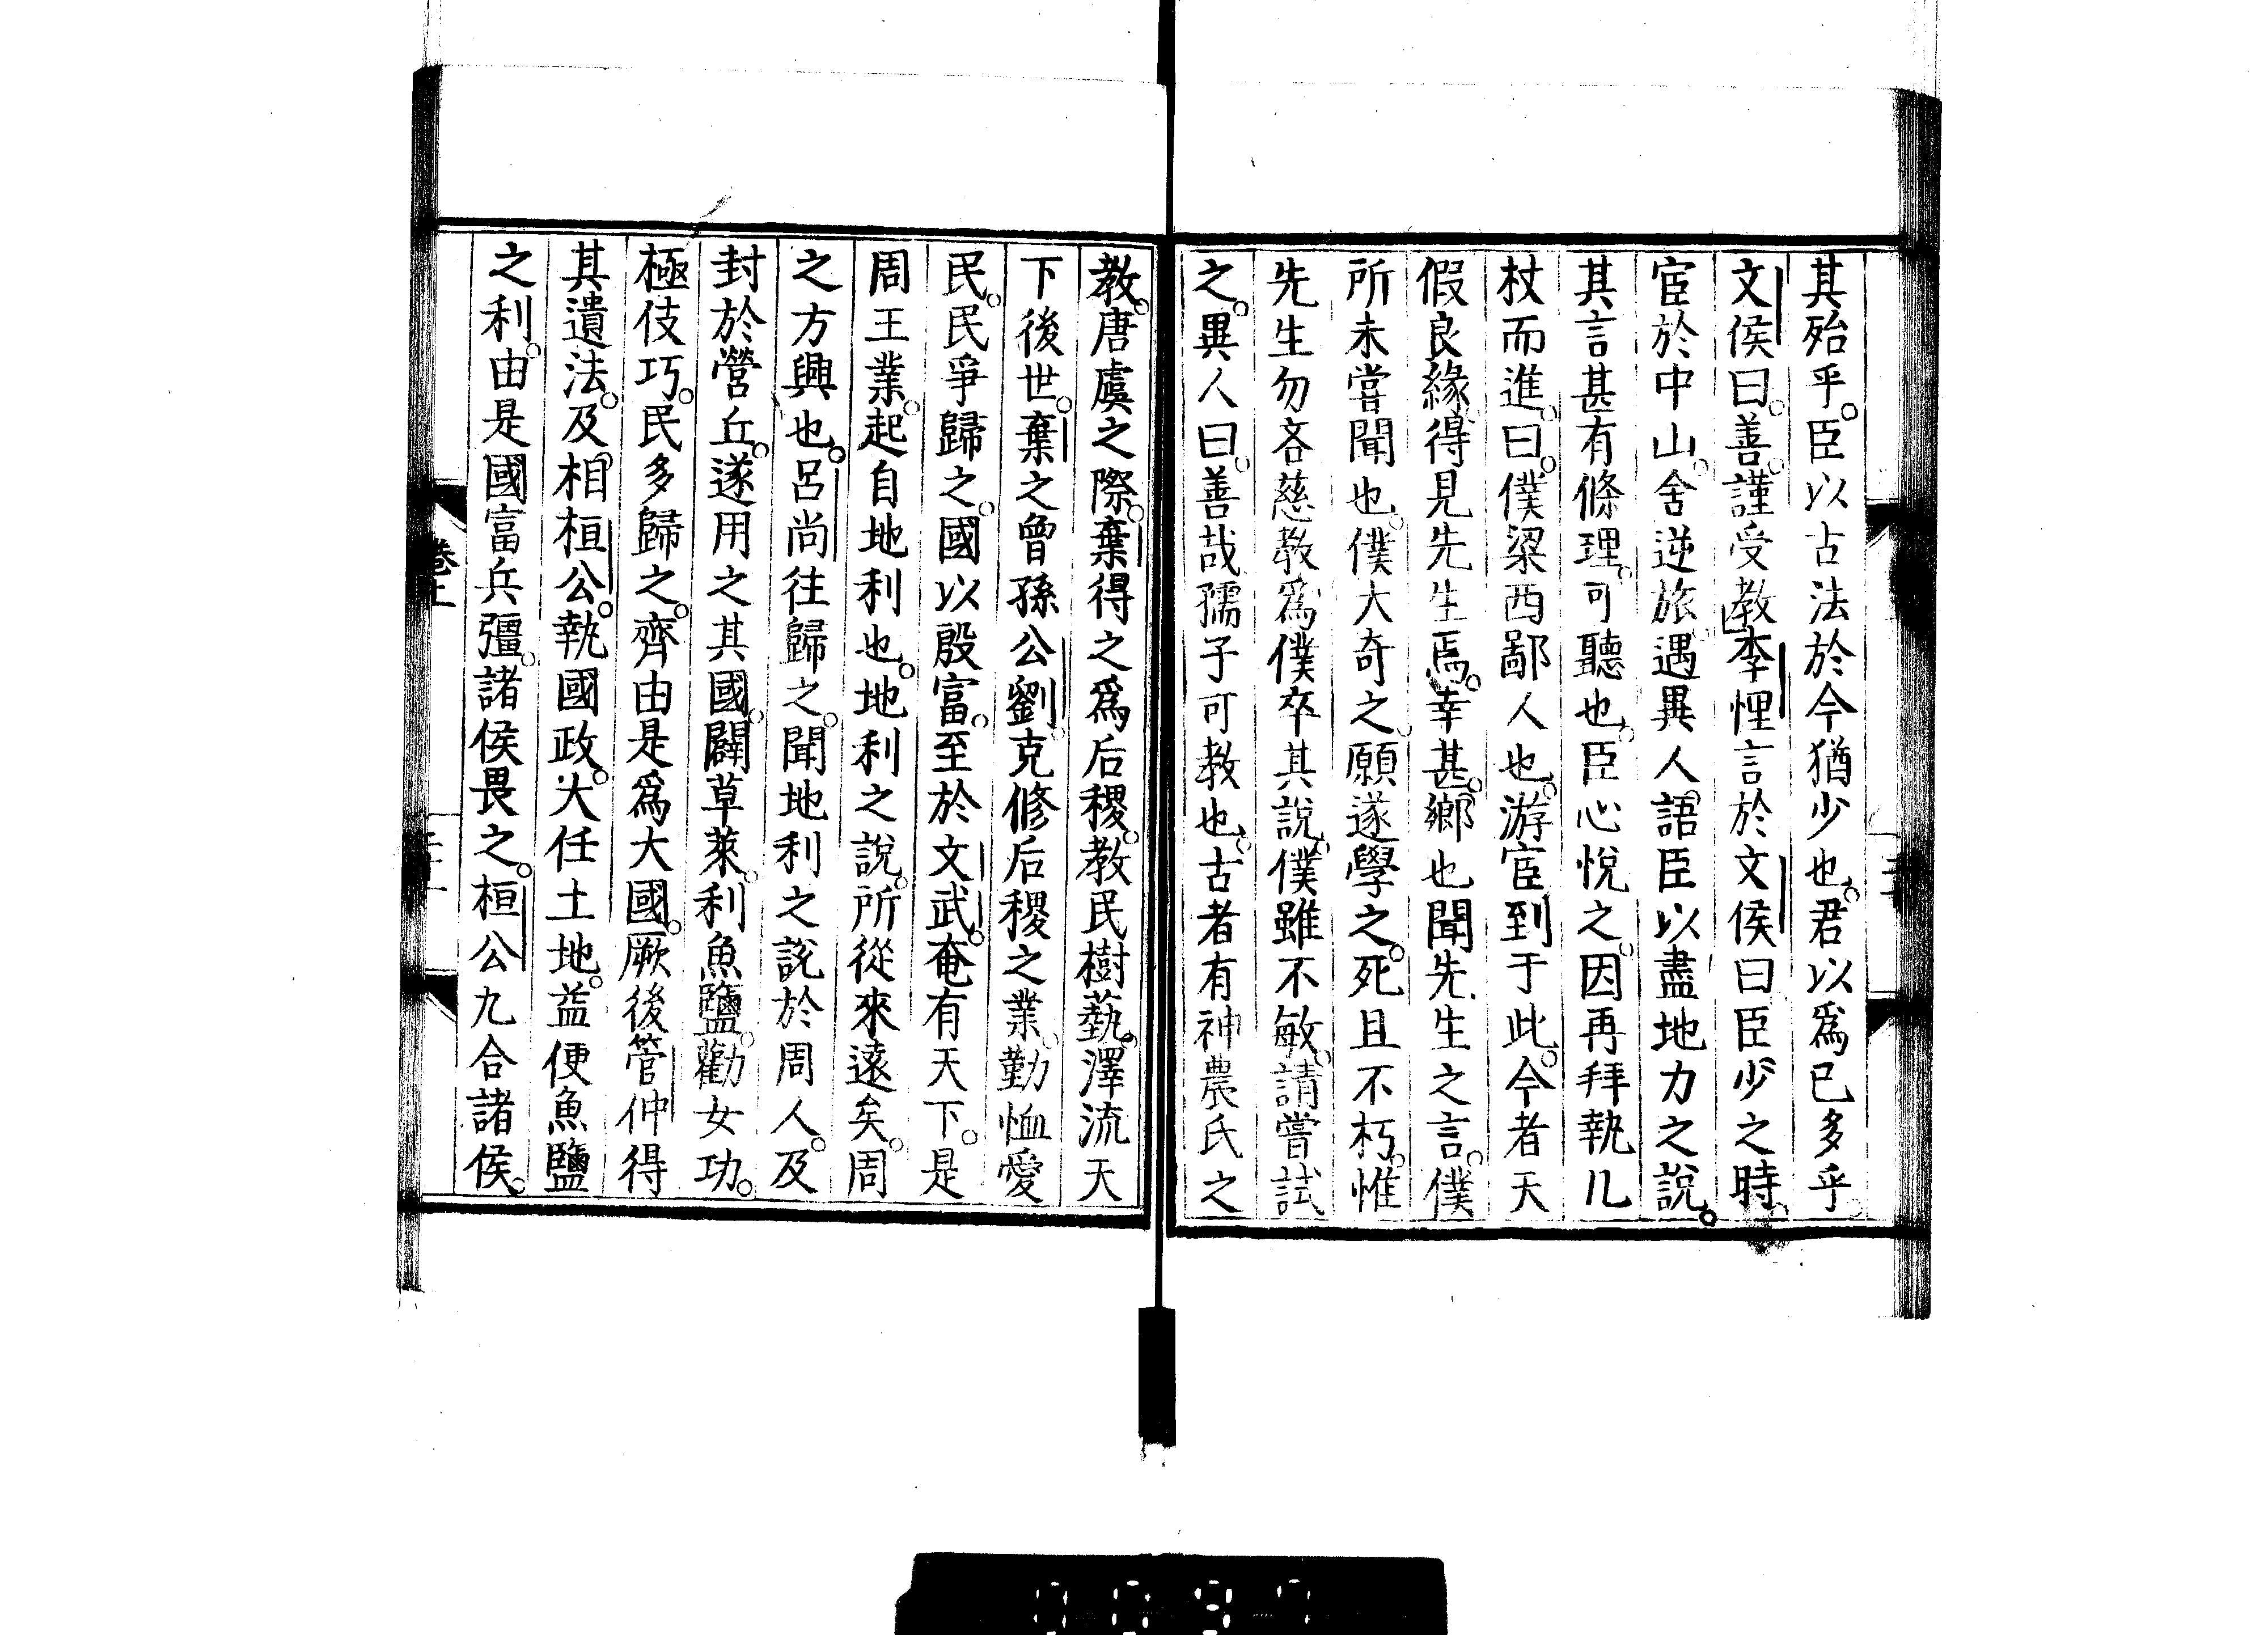 其殆乎臣以古法於今猶少也君以爲已多乎
文侯曰善謹受教李悝言於文侯曰臣少之時
宦於中山舍逆旅遇異人語臣以盡地力之說
其言甚有條理可聽也臣心悅之因再拜執几
杖而進曰僕梁西鄙人也游宦到于此今者天
假良緣得見先生焉幸甚鄉也聞先生之言僕
所未嘗聞也僕大奇之願遂學之死且不朽惟
先生勿吝慈教爲僕卒其說僕雖不敏請嘗試
之異人曰善哉孺子可教也古者有神農氏之
教唐虞之際棄得之爲后稷教民樹蓺澤流天
下後世棄之曾孫公劉克修后稷之業勤恤愛
民民爭歸之國以殷富至於文武奄有天下是
周王業起自地利也地利之說所從來遠矣周
之方興也呂尚往歸之聞地利之說於周人及
封於營丘遂用之其國闢草萊利魚鹽勸女功
極伎巧民多歸之齊由是爲大國厥後管仲得
其遺法及相桓公執國政大任土地益便魚鹽
之利由是國富兵彊諸侯畏之桓公九合諸侯
卷上